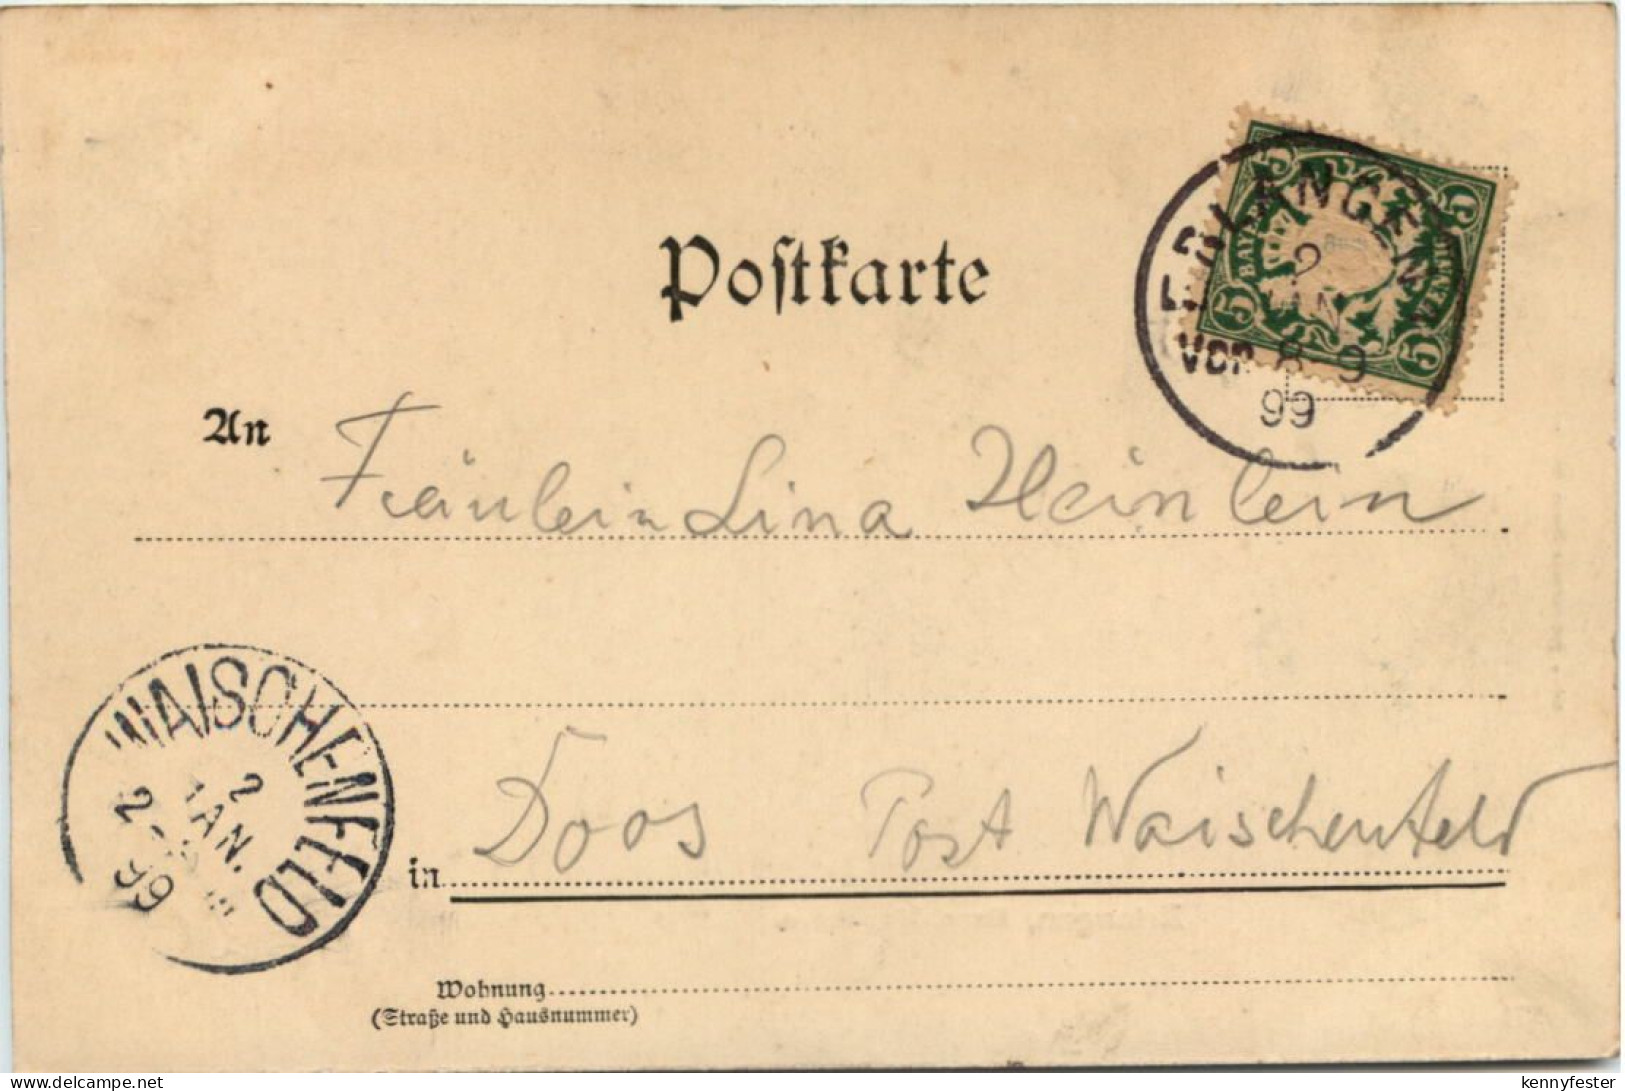 Postkarte
5 BAYERN 5
ERLANGEN
2
JAN
VOR. 8 9
99
An Fräulein Lina Heinlein
WAISCHENFELD
2
JAN.
99
in Doos Post Waischenfeld
Wohnung
(Straße und Hausnummer)
delcampe.net
kennyfester